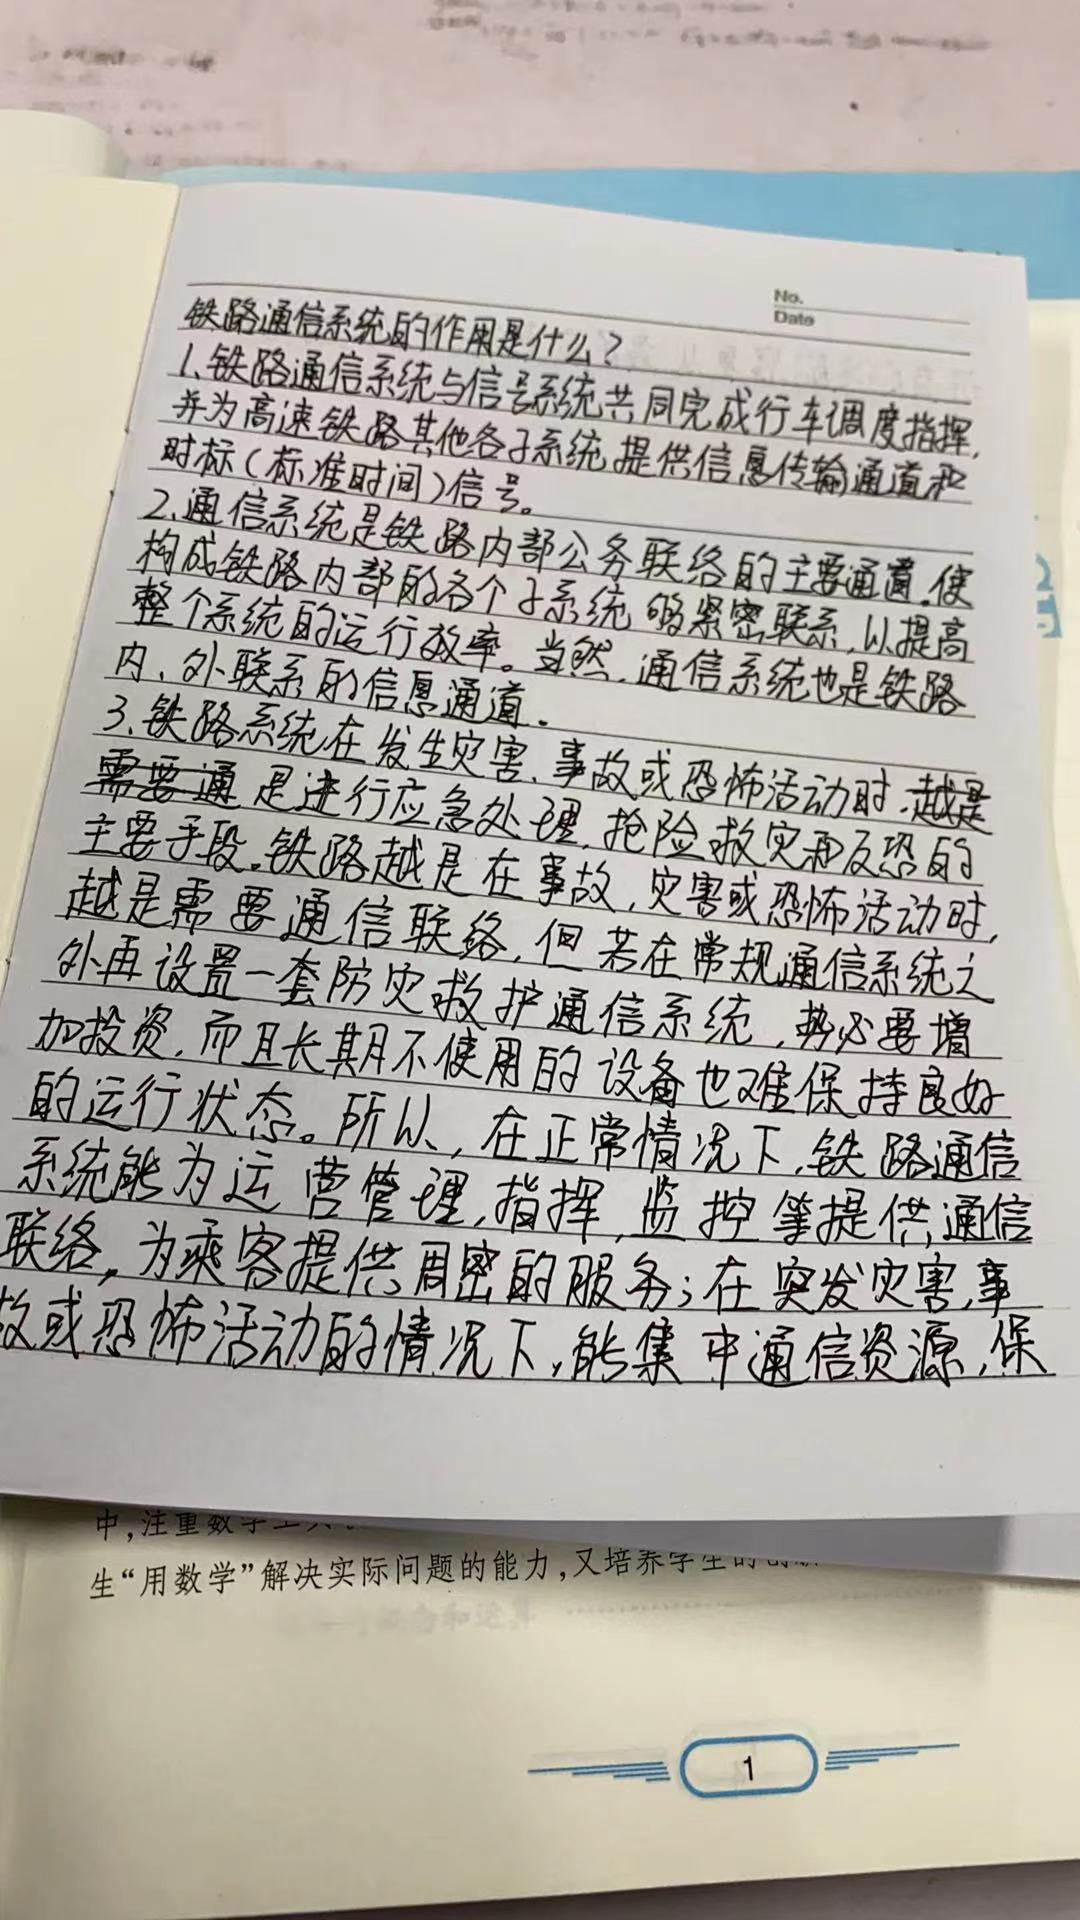 No.
Date
铁路通信系统的作用是什么?
1、铁路通信系统与信号系统共同完成行车调度指挥,
并为高速铁路其他各子系统提供信息传输通道和
时标(标准时间)信号。
2、通信系统是铁路内部公务联络的主要通道,使
构成铁路内部的各个子系统够紧密联系,以提高
整个系统的运行效率。当然,通信系统也是铁路
内、外联系的信息通道。
3、铁路系统在发生灾害、事故或恐怖活动时,越是
需要通是进行应急处理,抢险救灾和反恐的
主要手段。铁路越是在事故,灾害或恐怖活动时,
越是需要通信联络,但若在常规通信系统之
外再设置一套防灾救护通信系统,势必要增
加投资,而且长期不使用的设备也难保持良好
的运行状态。所以,在正常情况下,铁路通信
系统能为运营管理,指挥,监控等提供通信
联络,为乘客提供周密的服务;在突发灾害,事
故或恐怖活动的情况下,能集中通信资源,保
中,注重数学
生“用数学”解决实际问题的能力,又培养学生的
1